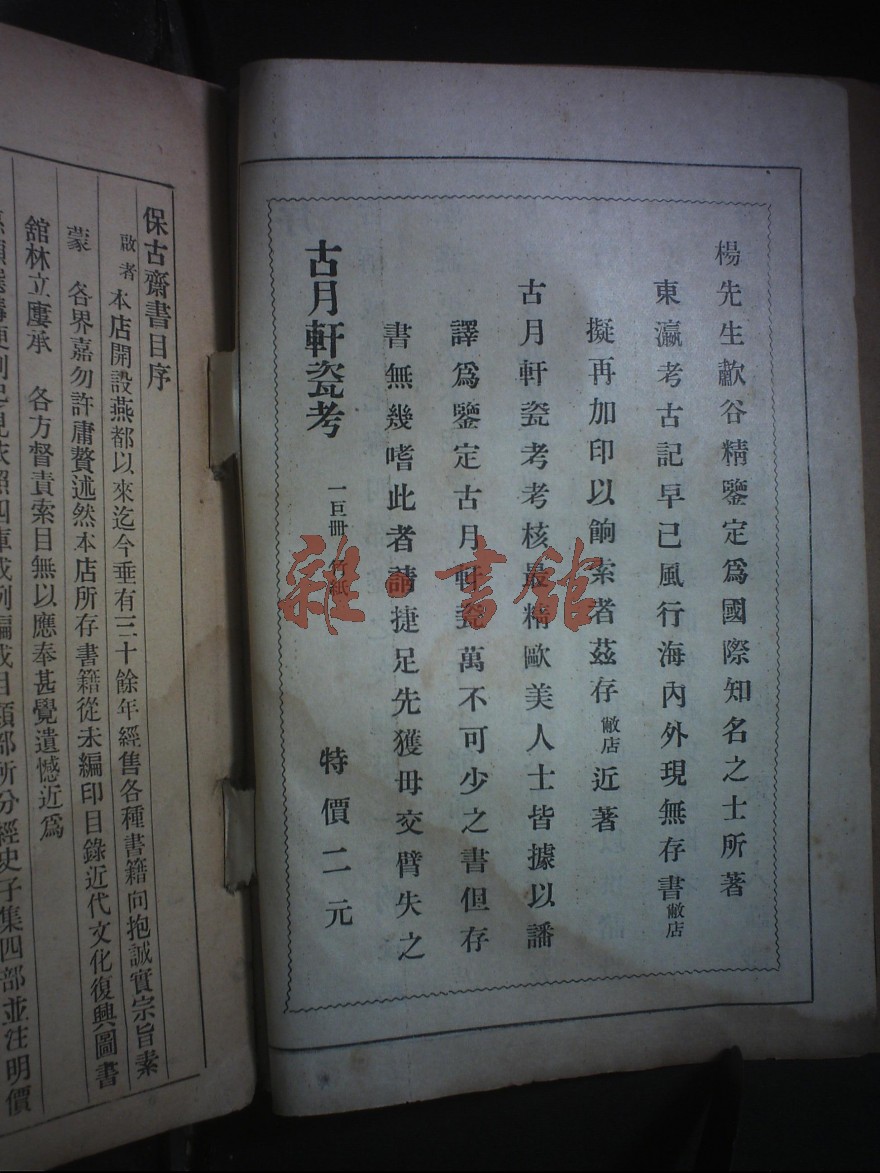 楊先生歗谷精鑒定爲國際知名之士所著
東瀛考古記早已風行海內外現無存書敝店
擬再加印以餉索者茲存敝店近著
古月軒瓷考考核最精歐美人士皆據以譒
譯爲鑒定古月軒瓷萬不可少之書但存
書無幾嗜此者請捷足先獲毋交臂失之
古月軒瓷考 一巨冊 竹紙 特價二元
雜·書館
保古齋書目序
啟者本店開設燕都以來迄今垂有三十餘年經售各種書籍向抱誠實宗旨素
蒙 各界嘉勿許庸贅述然本店所存書籍從未編印目錄近代文化復興圖書
舘林立屢承 各方督責索目無以應奉甚覺遺憾近爲
依照四庫成例編成目類部所分經史子集四部並注明價